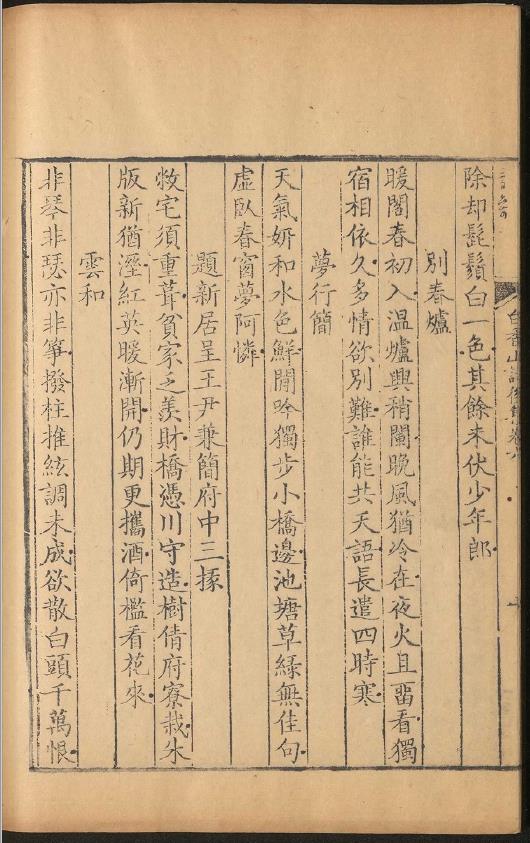 除却髭鬚白一色其餘未伏少年郎
別春爐
暖閣春初入温爐興稍闌晚風猶冷在夜火且畱看獨
宿相依久多情欲別難誰能共天語長遣四時寒
夢行簡
天氣妍和水色鮮閒吟獨步小橋邊池塘草綠無佳句
虛臥春窗夢阿憐
題新居呈王尹兼簡府中三掾
敝宅須重葺貧家之羨財橋憑川守造樹倩府寮栽朱
版新猶溼紅英暖漸開仍期更攜酒倚檻看花來
雲和
非琴非瑟亦非箏撥柱推絃調未成欲散白頭千萬恨